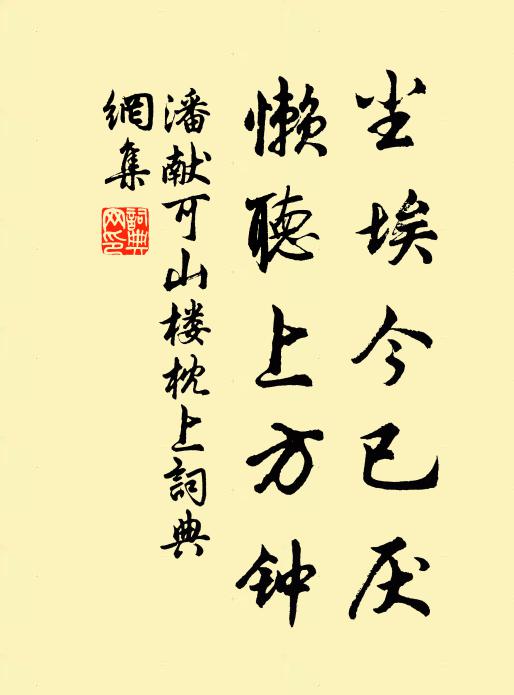 尘埃今已厌
懒聽上方钟
潘献可山楼枕上詞典
網集
詞典
网印